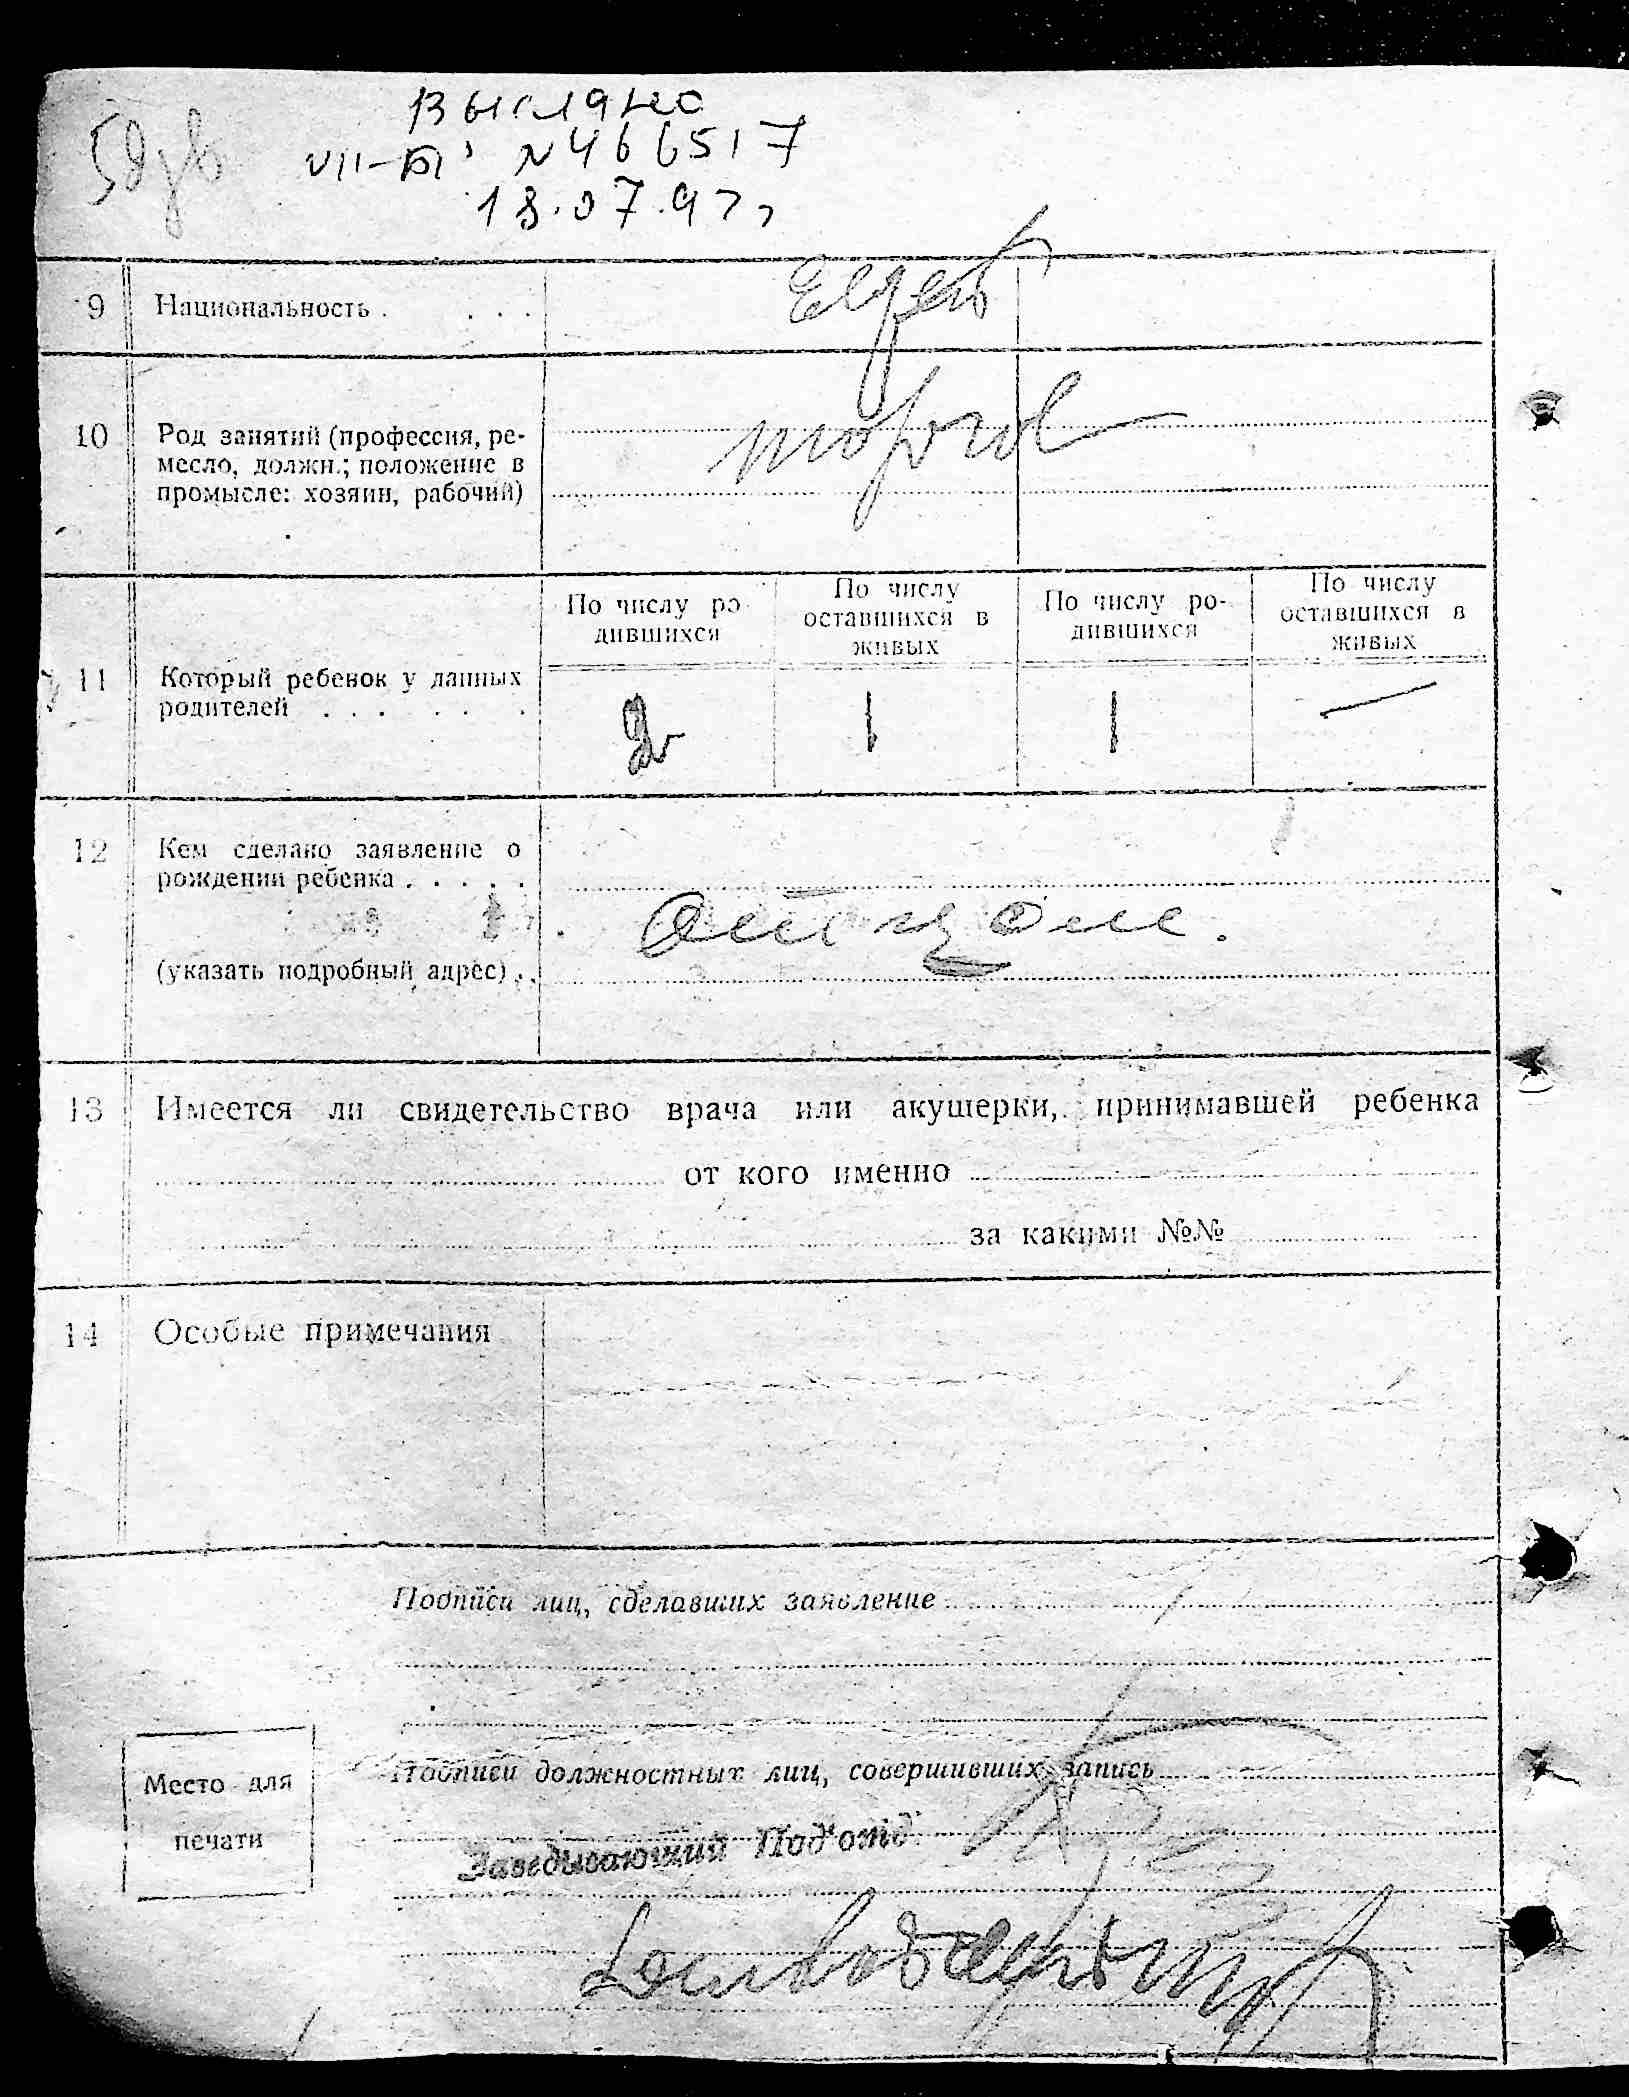 Выслано
VII-БГ № 466517
18.07.97г
9 Национальность . . . . Евреи
10 Род занятий (профессия, ре-
месло, должн.; положение в
промысле: хозяин, рабочий)
торгов
По числу ро-
дившихся
По числу
оставшихся в
живых
По числу ро-
дившихся
По числу
оставшихся в
живых
11 Который ребенок у данных
родителей . . . . . . .
2 1 1 —
12 Кем сделано заявление о
рождении ребенка . . . . .
отцом.
(указать подробный адрес) . .
13 Имеется ли свидетельство врача или акушерки, принимавшей ребенка
от кого именно
за какими №№
14 Особые примечания
Подписи лиц, сделавших заявление
Подписи должностных лиц, совершивших запись
Место для
печати
Заведывающий Под'отд.